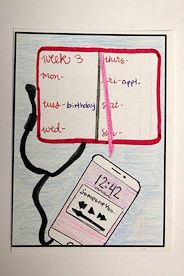 week 3
mon-
tues-birthday
wed-
thurs-
fri-appt.
sat-
sun-
12:42